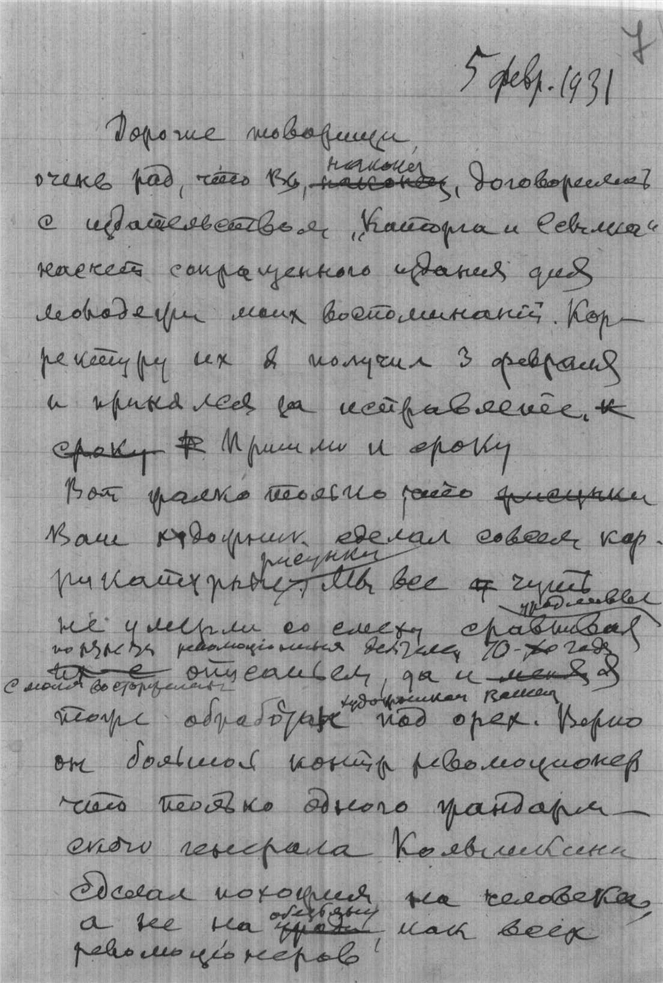 7
5 февр. 1931
Дорогие товарищи
наконец
очень рад, что Вы, наконец, договорились
с издательством „Каторга и Ссылка“
насчет сокращенного издания для
молодежи моих воспоминаний. Кор-
ректуру их я получил 3 февраля
и принялся за исправление, к
сроку Пришлю к сроку
Вот жалко только что рисунки
Ваш художник сделал совсем кар-
рикатурные рисунки
Мы все чуть
не умерли со смеху сравнивая
уродливые
революционных деятелей 70-х годов
с моим восторженным
описанием, да и меня
художник Вашей
тоже обработал под орех. Верно
он большой контр революционер
что только одного жандарм-
ского генерала
сделал похожим на человека,
обезьяну
а не на урода как всех
революционеров